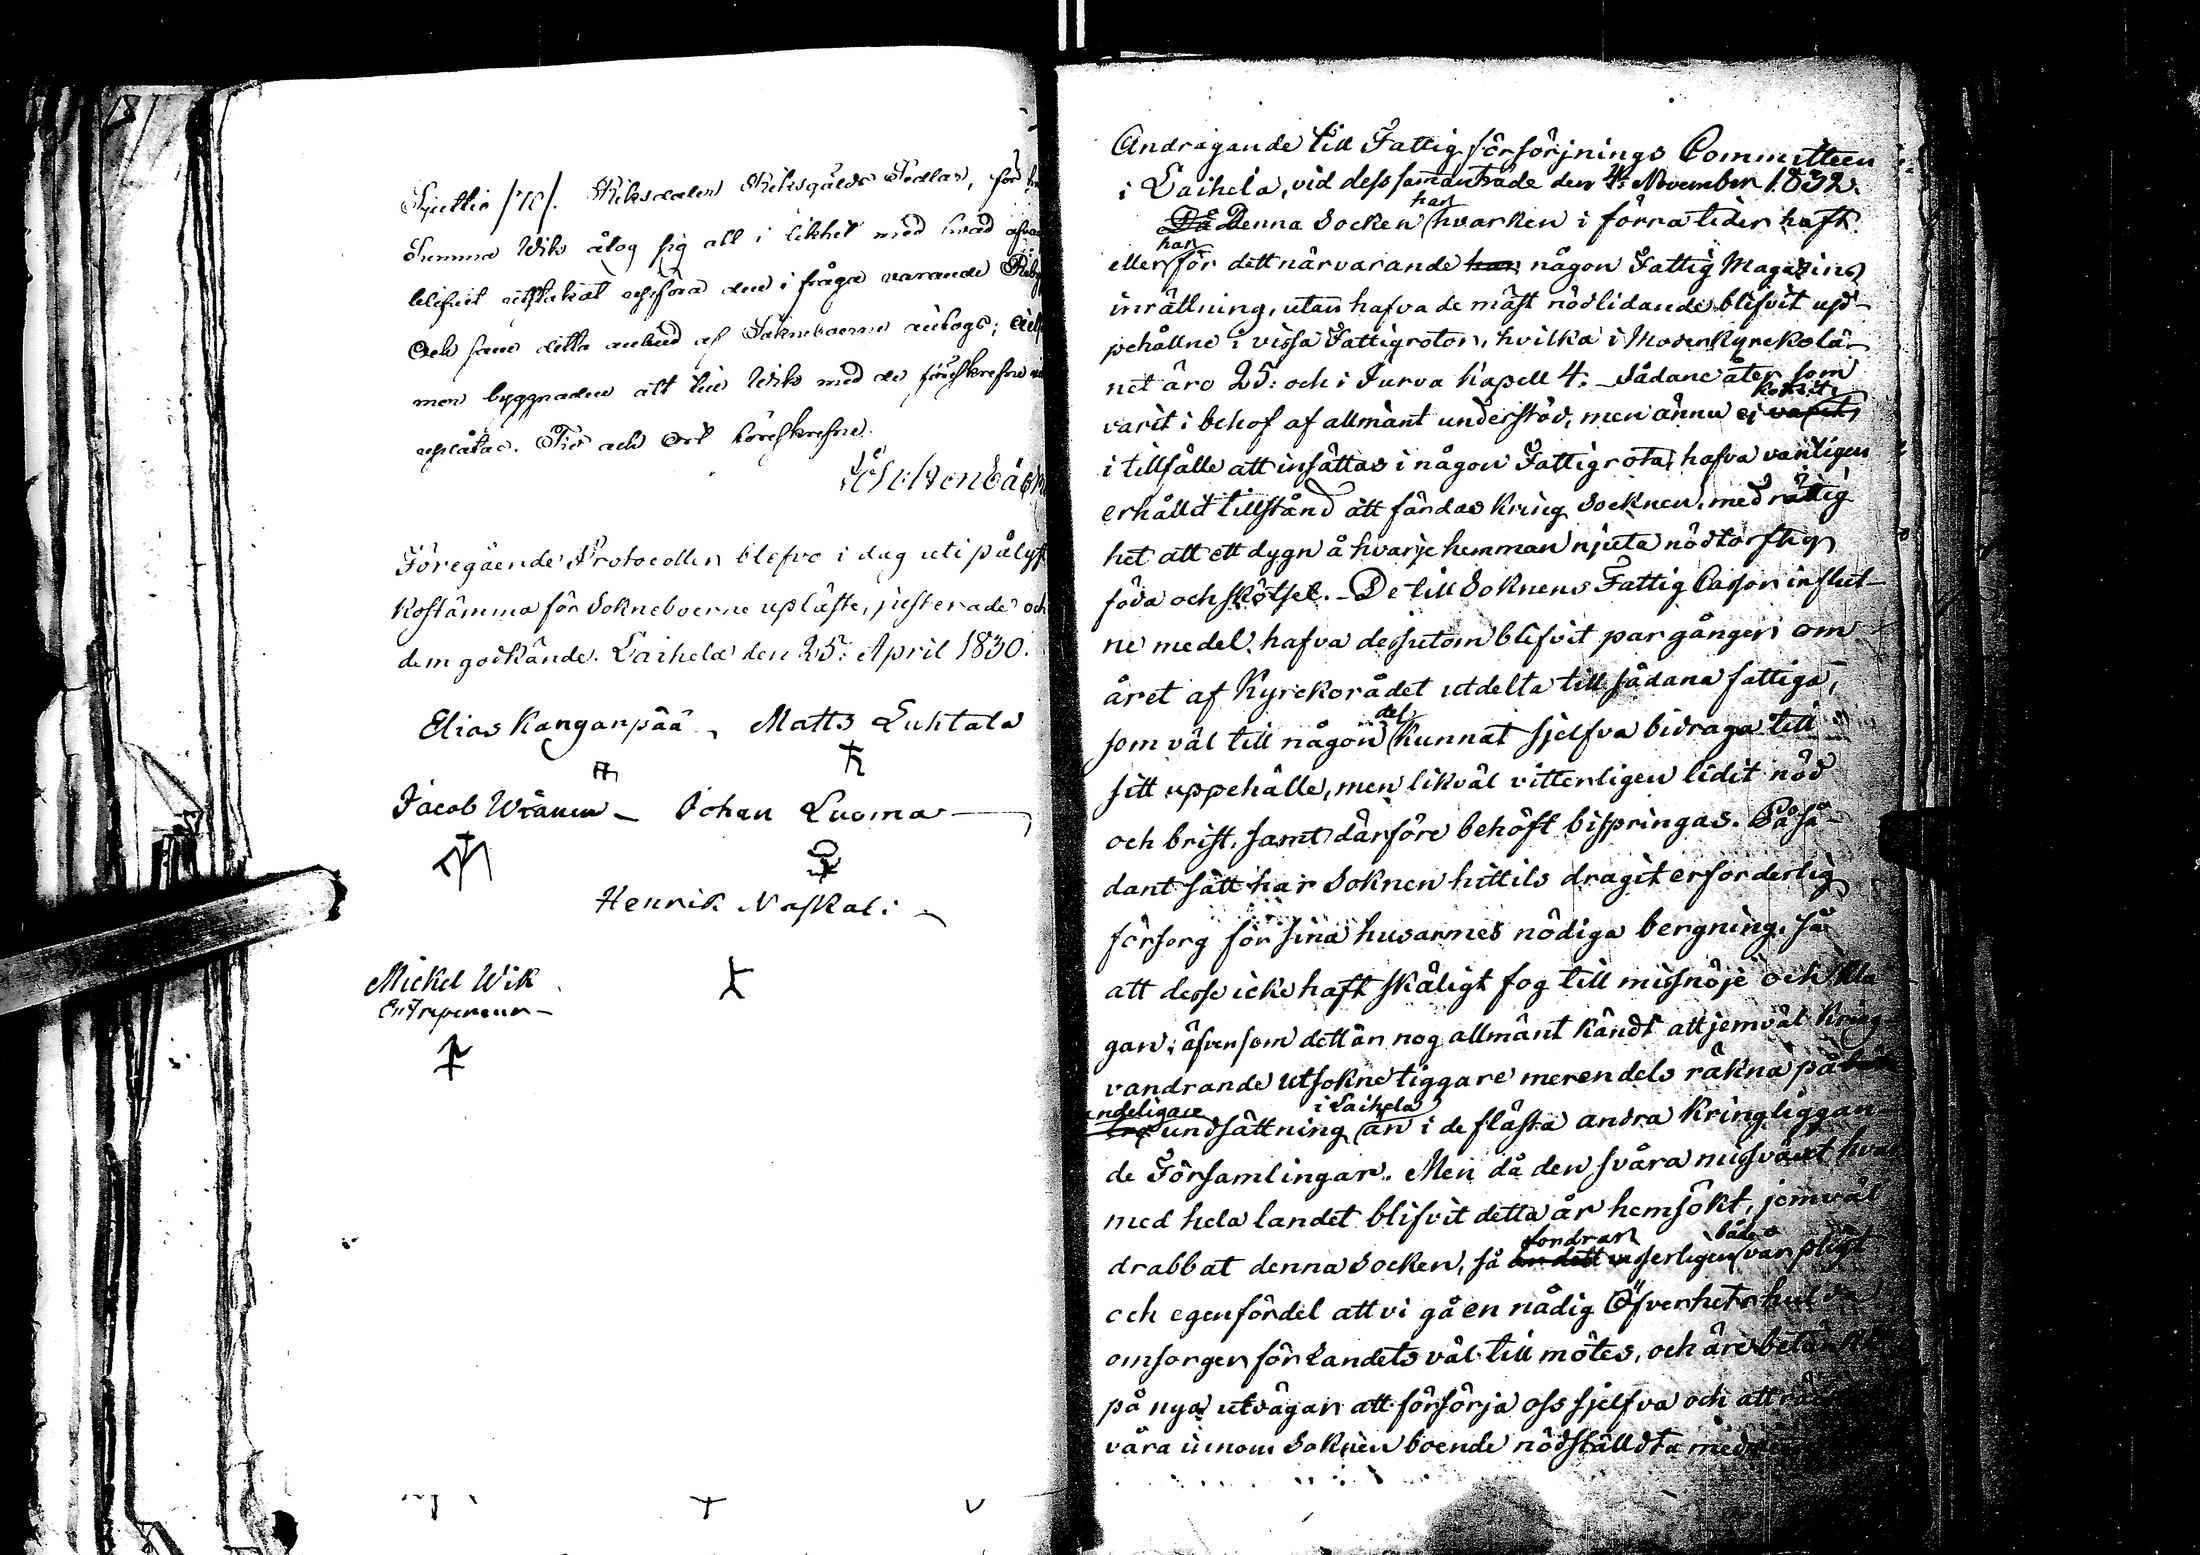 Sjuttio /70/. Riksdaler Riksgälds Sedlar, för
Summa Wik åtog sig att i likhet med hvad
blifvit utstakat uppföra den i fråga varande
Och som detta anbud af Soknboerne antogs;
men byggnaden att till Wik med de föreskrefne
uplåtas. Tid och Ort föreskrefne.
Föregående Protocoller blefvo i dag uti pålyst
Kostämma för Sokneboerne upläste, justerade och
dem godkände. Laihela den 25: April 1830.
Elias Kanganpää, Matts Luhtala
Jacob Wränen – Johan Luoma –
Henrik Naskali
Michel Wik
Entrepreneur –
Andragande till Fattigförsörjnings Committeen
i Laihela, vid dess sammanträde den 4: November 1832.
har
Då Denna Socken hvarken i förra tider haft
har
eller för dett närvarande har någon Fattig Magazins
inrättning, utan hafva de mäst nödlidande blifvit up-
pehållne i vissa Fattigrotor, hvilka i Moderkyrkolä-
net äro 25: och i Jurva Kapell 4. – Sådane åter som
kommit
varit i behof af allmänt understöd, men ännu ej varit
i tillfälle att insättas i någon Fattigrota, hafva vanligen
erhållit tillstånd att färdas kring Socknen, med rättig
het att ett dygn å hvarje hemman njuta nödtorftig
föda och skötsel. – De till Soknens Fattig Cassor influt-
ne medel, hafva dessutom blifvit par gånger om
året af Kyrkorådet utdelta till sådana fattiga,
del
som väl till någon kunnat sjelfva bidraga till
sitt uppehälle, men likväl vitterligen lidit nöd
och brist, samt därföre behöft bispringas. På så-
dant sätt har Soknen hittils dragit erforderlig
försorg för sina husarmes nödiga bergning, så
att desse icke haft skäligt fog till missnöje och kla
gan; äfvensom dett är nog allmänt kändt att jemväl kring
vandrande utsokne tiggare merendels räkna på
ndeligare i Laihela
undsättning än i de flästa andra kringliggan-
de Församlingar. Men då den svåra missväxt hvar
med hela landet blifvit detta år hemsökt, jemväl
fordrar både
drabbat denna Socken, så är dett visserligen vår pligt
och egen fördel att vi gå en nådig Öfverhets hulda
omsorger för Landets väl till mötes, och äre betänkte
på nya utvägar att försörja oss sjelfva och att
våra innom Soknen boende nödställdta